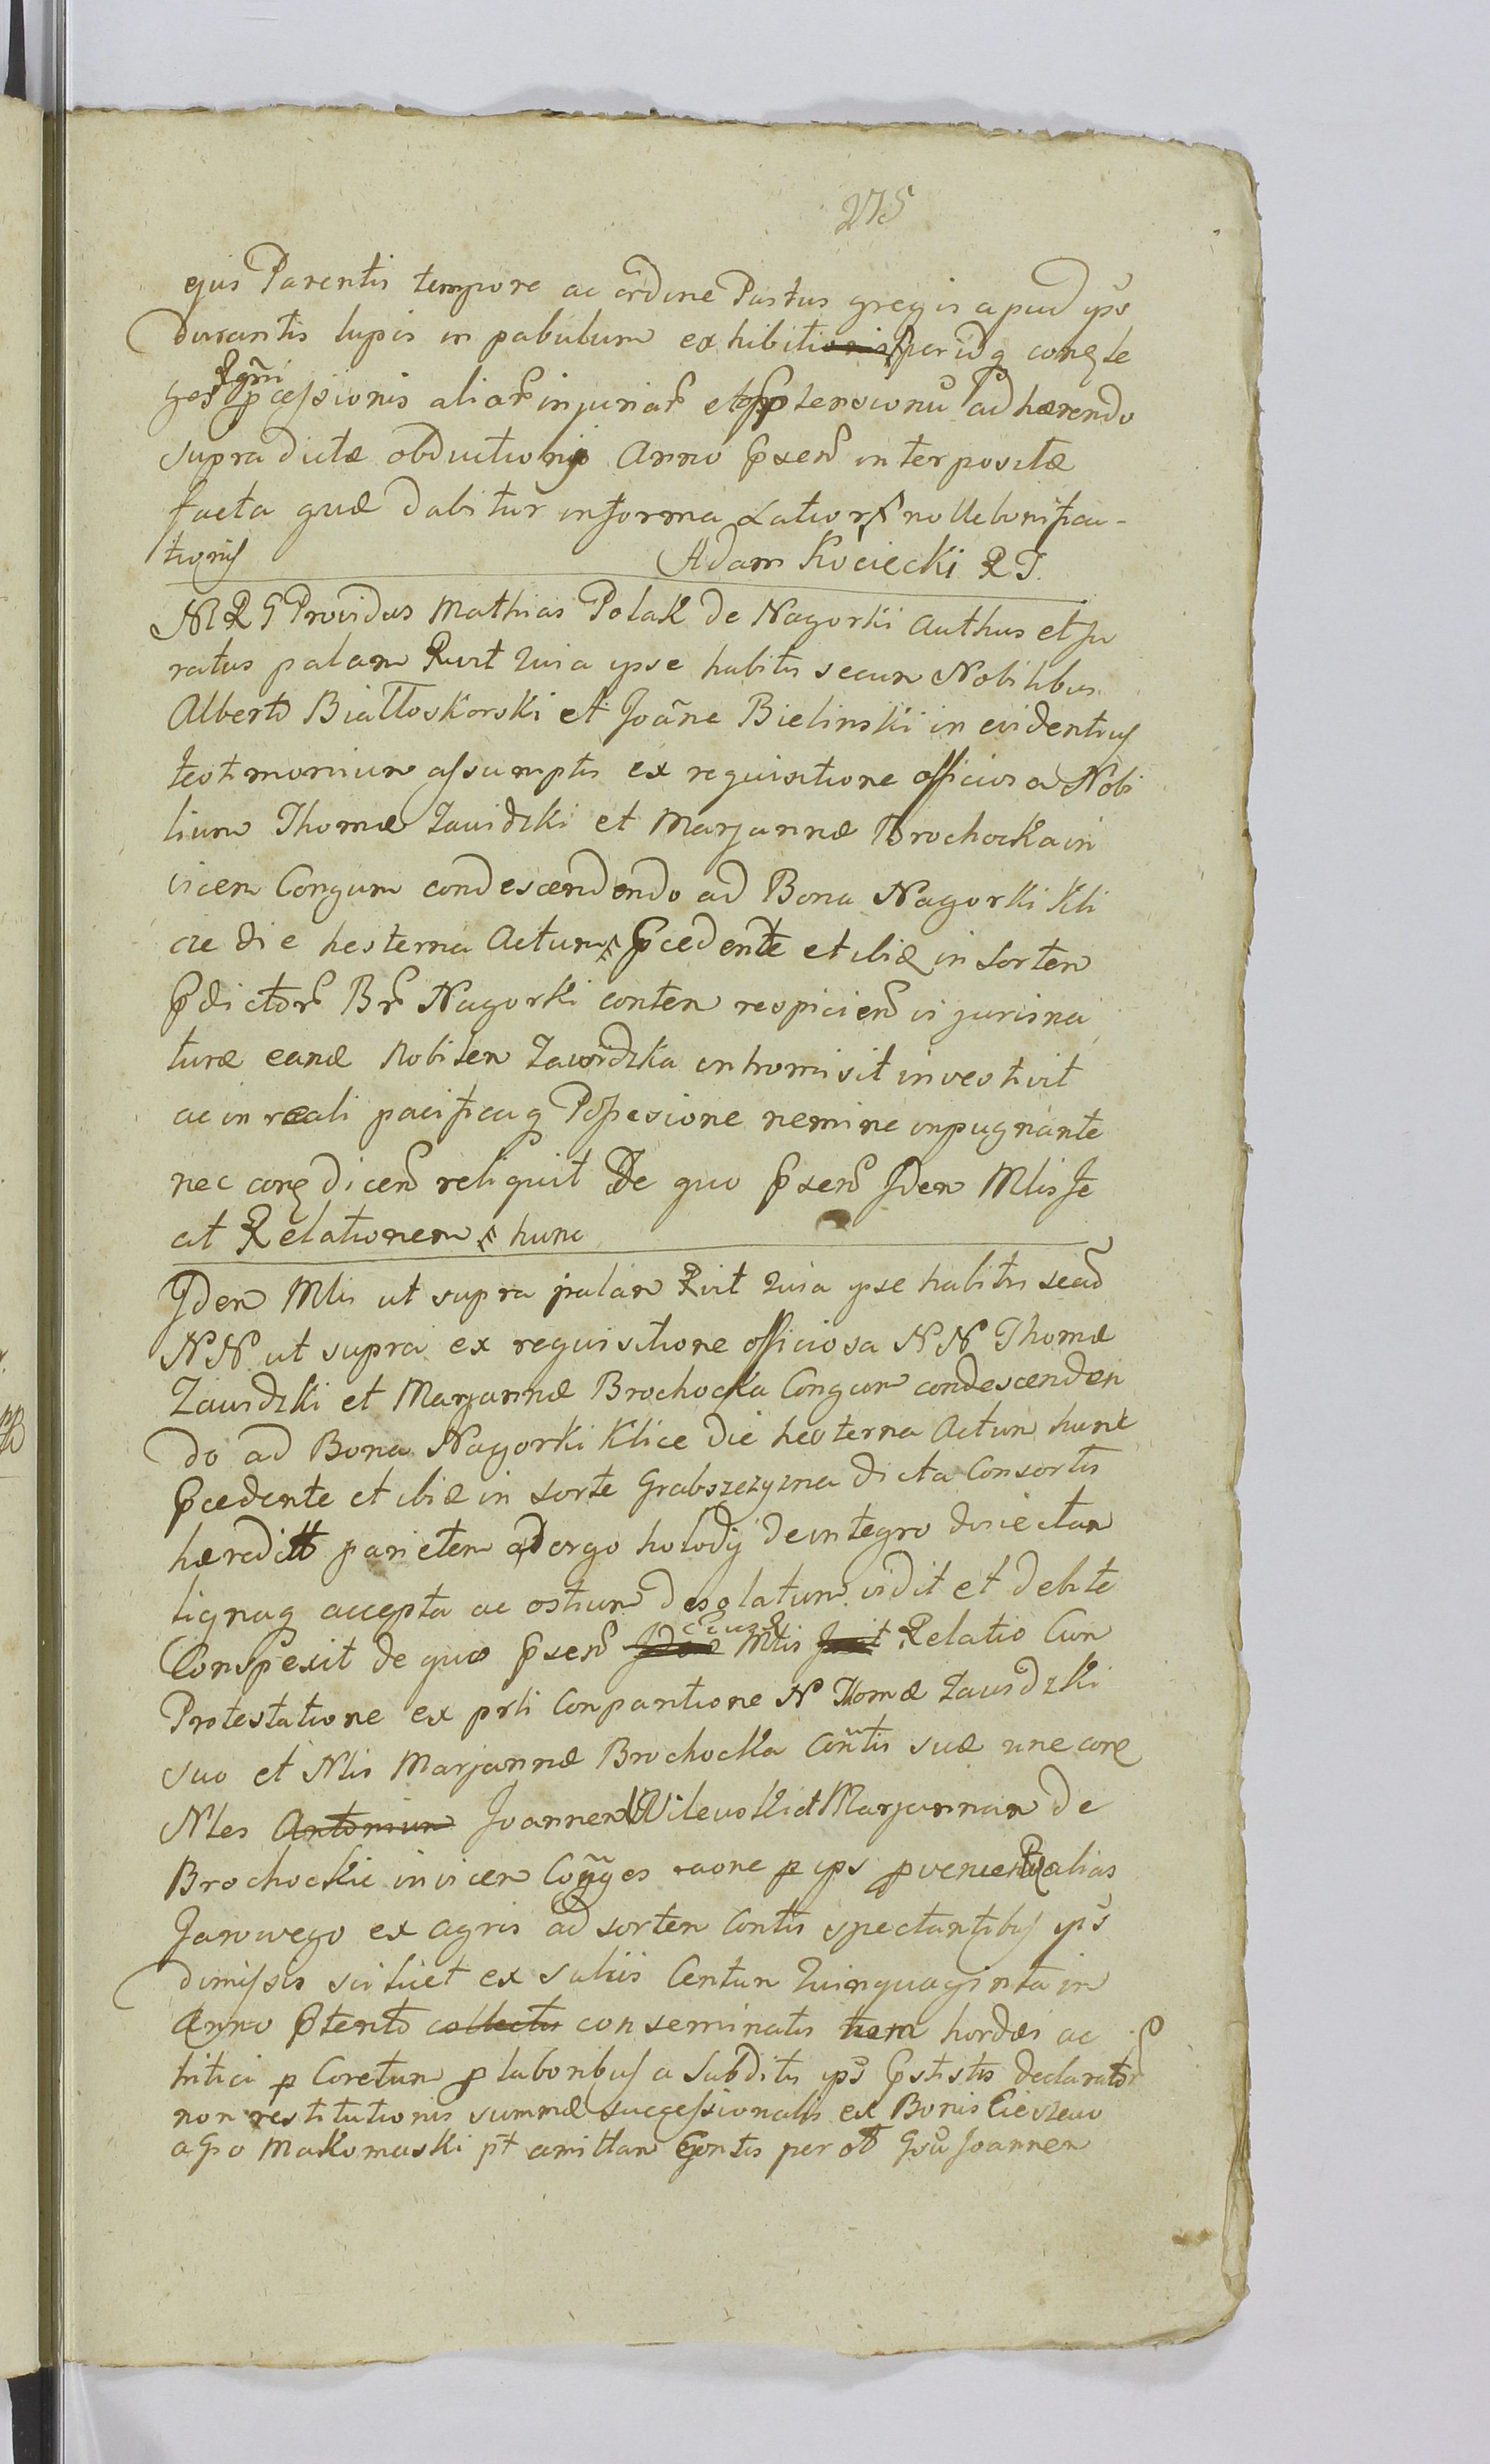 275
ejus Parentis tempore ac ordine Pastus gregis apud ips
durantis lupis in pabulum exhibiti peridq conq le
ges pcessionis aliar injuriar et ptensionu adhærendo
supradictæ obductionis Anno psen interpositæ
facta quæ dabitur in forma Latiori no Mebonifica-
tionis Adam Kociecki R T.
M R G Providus Mathias Polak de Nagorki authus et Ju
ratus palam Rvit Quia ipse habitis secum Nobilibus
Alberto Białłoskorski et Joane Bielinski in evidentius
testimonium assumptis ex requisitione officiosa Nobi
lium Thomæ Zawidzki et Marjannæ Brochocka in
vicem Conjum condescendendo ad Bona Nagorki Kli
cie die hesterna Actum pcedente et ibiq in sortem
pdictor Br Nagorki conten respicien vi juris na
turæ eand Nobilem Zawidzka intromisit investivit
ac in reali pacificaq Possesione nemine inpugnante
nec conq dicen reliquit De quo psen Jdem Mlis Je
cit Relationem hunc
Jdem Mlis ut supra palam Rvit Quia ipse habitis secu
NN ut supra ex requisitione officiosa NN Thomæ
Zawidzki et Marjannæ Brochocka Conjum condescenden
do ad Bona Nagorki Klice die hesterna Actum hunc
pcedente et ibiq in sorte Grabszczyzna dicta Consortis
hæredit parietem a tergo holody de integro disiectam
lignaq accepta ac ostium desolatum vidit et debite
Conspexit de quo psen Mlis Relatio Cum
Protestatione ex prli Conparitione N Thomæ Zawidzki
suo et Nlis Marjannæ Brochocka Contis suæ nne conq
Nles Antonium Joannem Wilewski et Marjannam de
Brochockie invicem Conjges raone p ips pvenien alias
Jarowego ex agris ad sortem Contis spectantibus ips
dimissis scilicet ex Salis Centum Quinquaginta in
Anno ptento collectis conseminatis hordei ac
tritici p Coretum p laboribus a Subditis ips pstistis declarator
non restitutionis summæ successionalis ex Bonis Cieszewo
a Go Makomaski pt amittam Contis per ol Gsu Joannem